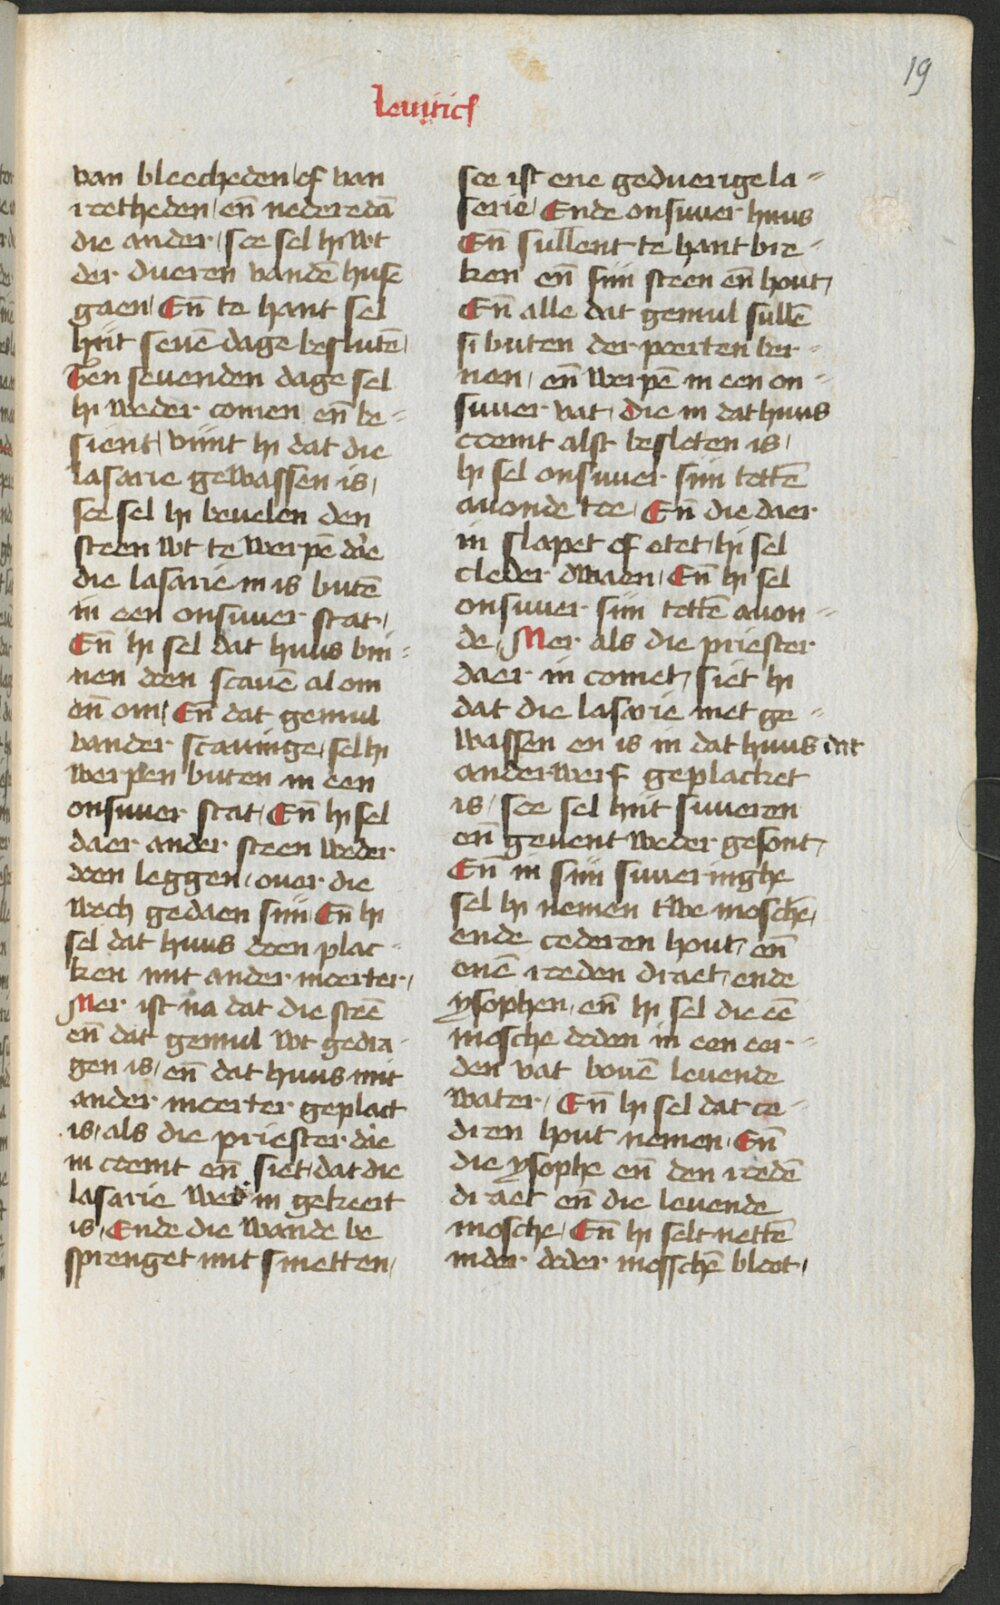 19
leuiticus
van bleecheden / of van
roetheden / en̄ nederedā
die ander / soe sel hi wt
der dueren vandē huse
gaen / En̄ te hant sel
hijt seuē dage beslutē /
Ten seuenden dage sel
hi weder comen en̄ be=
sient / vijnt hi dat die
lasarie gewassen is /
soe sel hi beuelen den
steen wt te werpē d'ie
die lasarie in is butē
in een onsuuer stat /
En̄ hi sel dat huus bin=
nen doen scauē al om
en̄ om / En̄ dat gemul
vander scauinge / sel hi
werpen buten in een
onsuuer stat / En̄ hi sel
daer ander steen weder
doen leggen / ouer die
wech gedaen sijn / En̄ hi
sel dat huus doen plac=
ken mit ander moerter /
Mer ist na dat die steē
en̄ dat gemul wt gedra=
gen is / en̄ dat huus mit
ander moerter geplact
is / als die priester d'ie
in coemt en̄ siet / dat die
lasarie wed' in gekeert
is / Ende die wande be
sprenget mit smetten /
soe ist ene geduerige la=
serie / Ende onsuuer huus
En̄ sullent te hant bre=
ken en̄ sijn steen en̄ hout /
En̄ alle dat gemul sullē
si buten der poerten ber=
nen / en̄ werpē in een on=
suuer vat / die in dat huus
coemt alst besloten is /
hi sel onsuuer sijn tottē
auonde toe / En̄ die daer
in slapet of etet / hi sel
cleder dwaen / En̄ hi sel
onsuuer sijn tottē auon=
de / Mer als die priester
daer in comet / siet hi
dat die lasarie niet ge=
wassen en is in dat huus dat
anderwerf geplacket
is / soe sel hijt suueren
en̄ geuent weder gesont /
En̄ in sijn suueringhe
sel hi nemen twe moschē /
ende cederen hout / en̄
enē roeden draet / ende
ysophen / en̄ hi sel die eē
mosche doden in een eer=
den vat bouē leuende
water / En̄ hi sel dat ce=
dren hout nemen / En̄
die ysophe en̄ den roedē
draet en̄ die leuende
mosche / En̄ hi selt nettē
inder doder mosschē bloet /